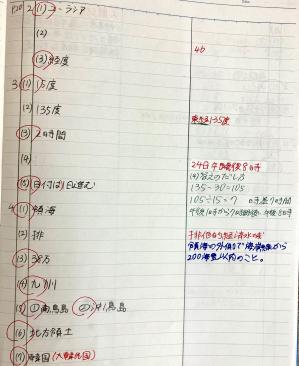 2 (1) ユーラシア
(2)
(3) 経度
46
3 (1) 15度
(2) 135度
東経135度
(3) 2時間
(4)
24日午後8時
(4)答えのだし方
135-30=105
105÷15=7 時差7時間
(5) 日付は1日進む
4 (1) 領海
(2) 排
排他的経済水域
領海の外側で海岸線から
200海里以内のこと。
(3) 38万
(4) 九州
(5) ①南鳥島 ②沖ノ鳥島
(6) 北方領土
(7) 韓国(大韓民国)